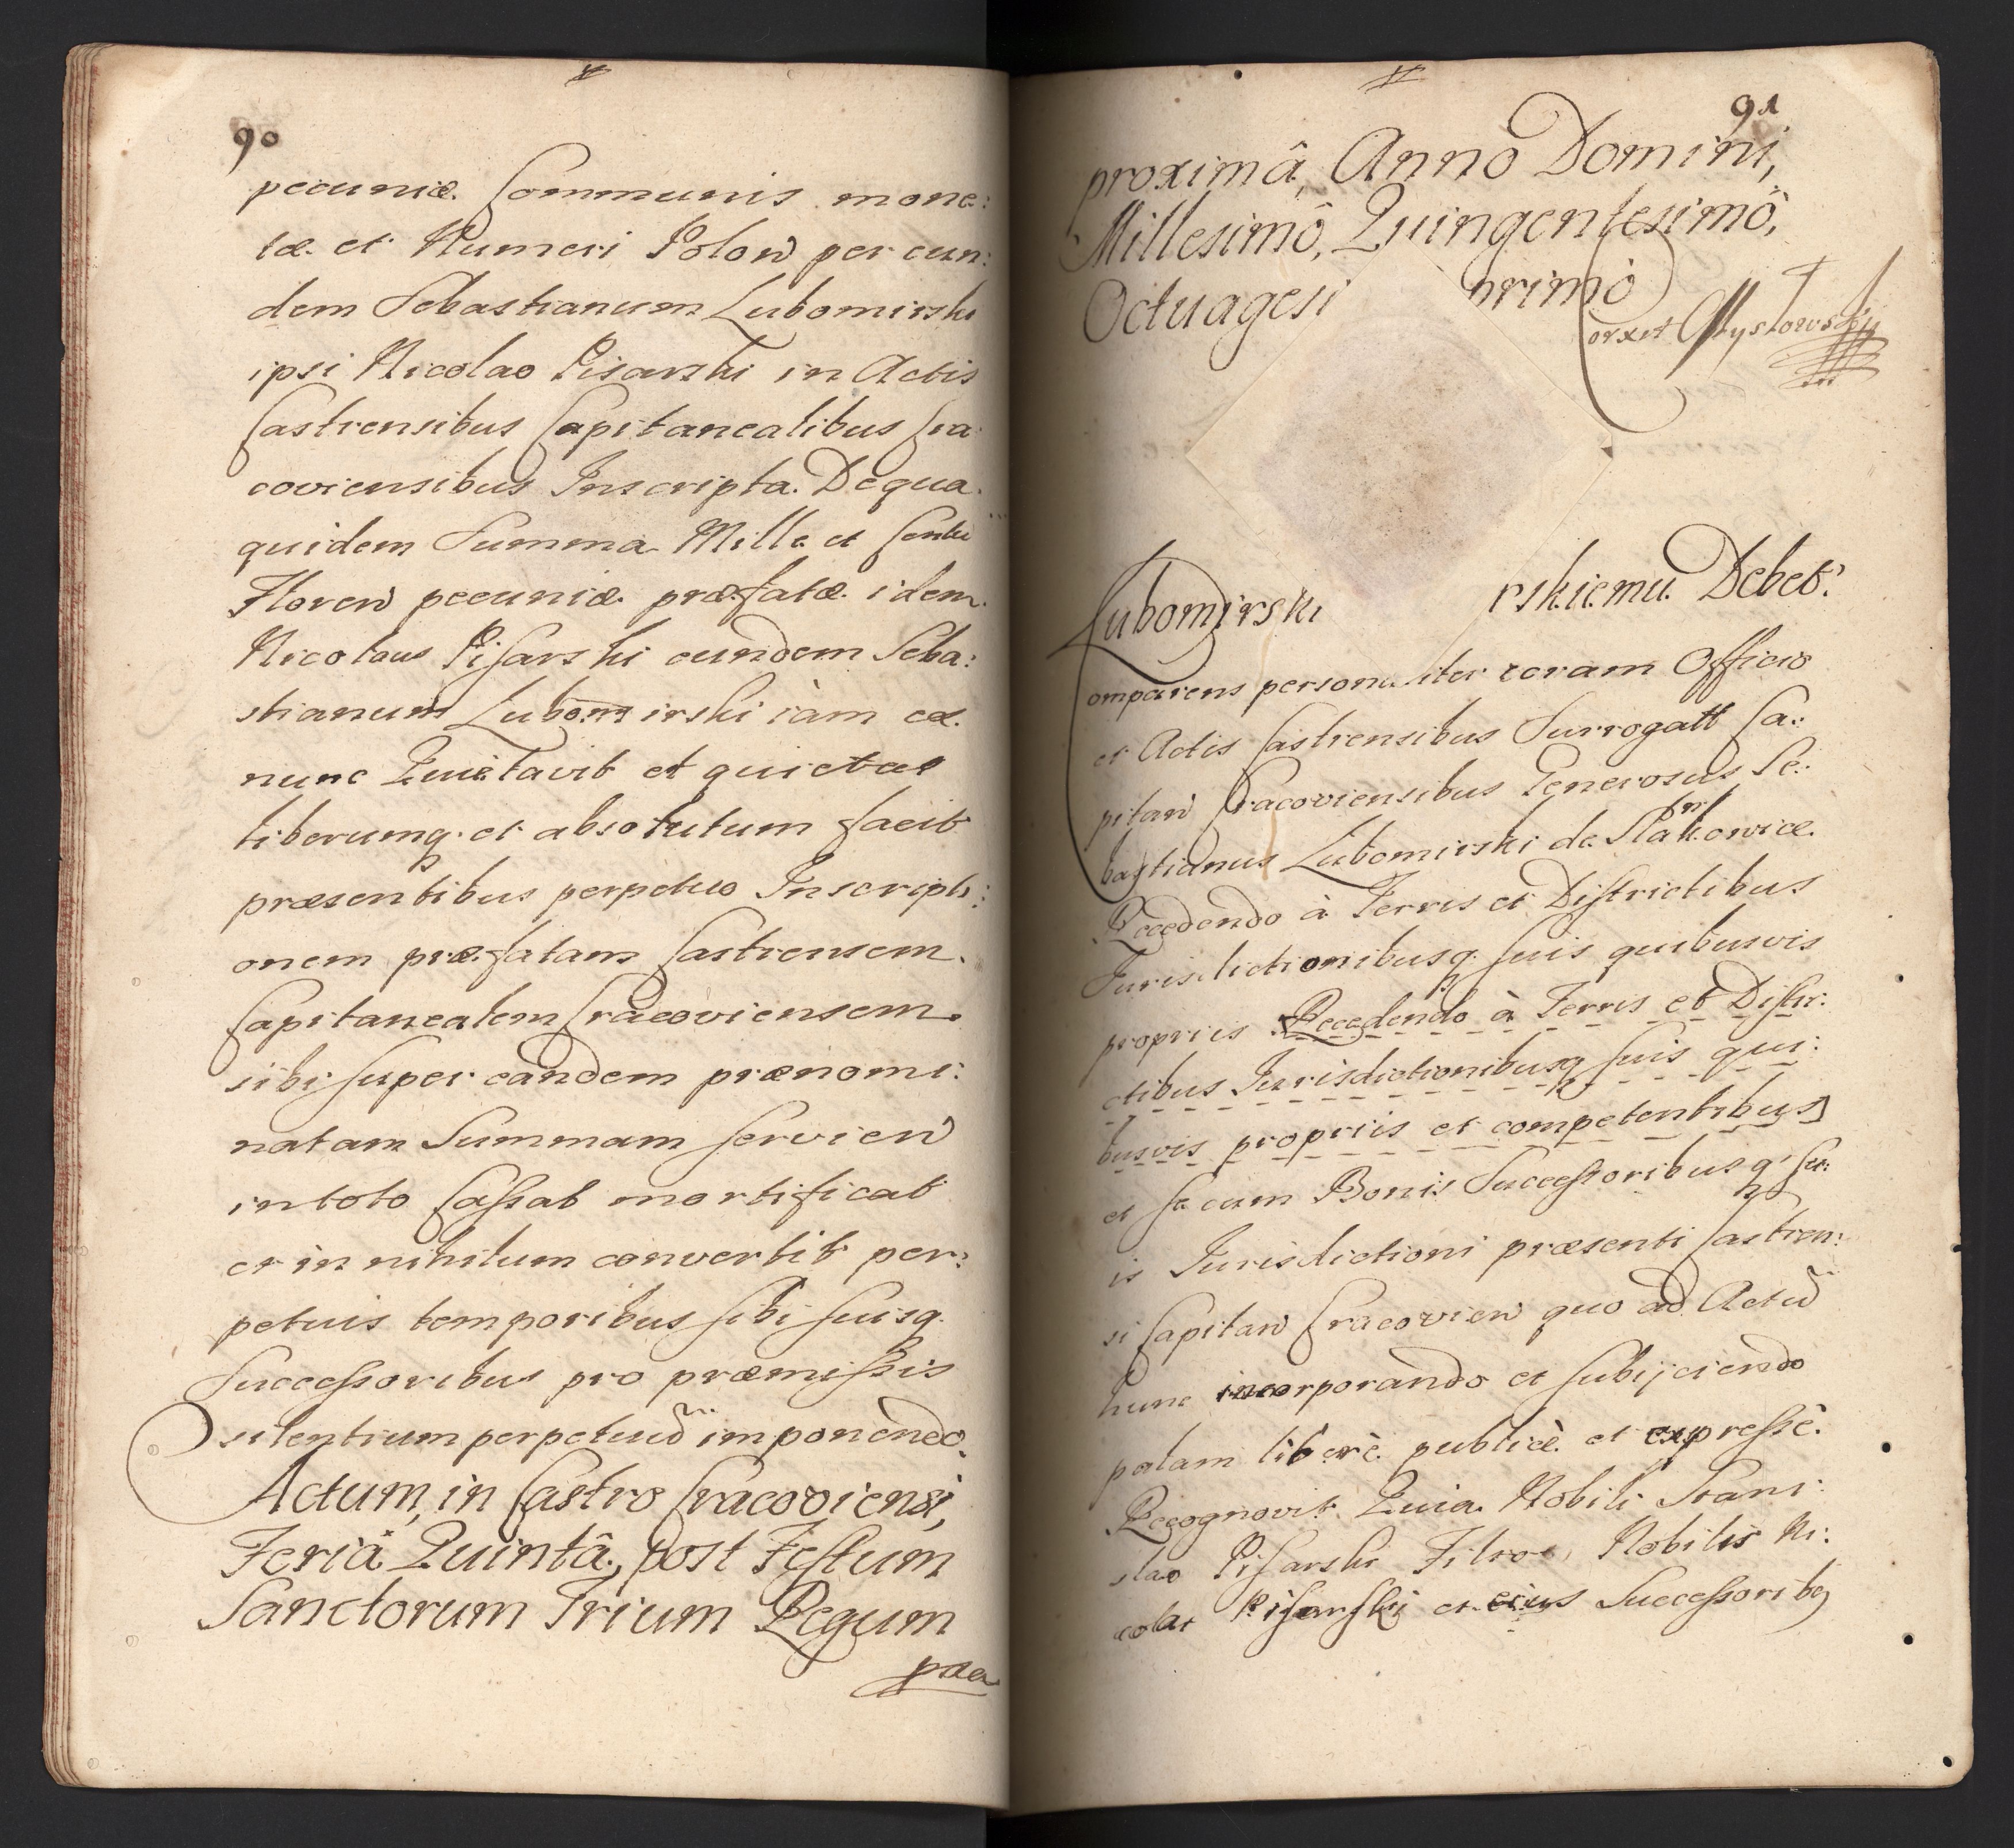 90
pecuniæ Communis mone:
tæ et Numeri Polon per eun:
dem Sebastianum Lubomirski
ipsi Nicolao Pisarski in Actis
Castrensibus Capitanealibus Cra
coviensibus Inscripta. De qua
quidem Summa Mille et Centu
Floren pecuniæ præfatæ idem
Nicolaus Pisarski eundem Seba:
stianum Lubomirski iàm ex
nunc Quietavit et quietat
liberumq et absolutum facit
præsentibus perpetuo Inscripti:
onem præfatam Castrensem
Capitanealem Cracoviensem
sibi super eandem prænomi:
natam Summam servien
in toto Cassat mortificat
et in nihilum convertit per:
petuis temporibus sibi suisq
Successoribus pro præmissis
silentium perpetuu imponendo
Actum, in Castro Cracoviensi,
Feriâ Quintâ, post Festum
Sanctorum Trium Regum
91
proximâ, Anno Domini,
Millesimô, Quingentesimô,
Octuagesi primô
Lubomirski rskiemu Debet:
Comparens persona iter coram Officio
et Actis Castrensibus Surrogatt Ca:
pitan Cracoviensibus Generosus Se:
bastianus Lubomirski de
Recedendo à Terris et Districtibus
Jurisdictionibusq suis quibusvis
propriis Recedendo à Terris et Distri:
ctibus Jurisdictionibusq suis qui:
busvis propriis et competentibus
et se cum Bonis Successoribusq su:
is Jurisdictioni præsenti Castren:
si Capitan Cracovien quo ad Actu
hunc incorporando et subijciendo
palam liberè publicè et expressè
Recognovit Quia Nobili Stani:
slao Pisarski Filio Nobilis Ni:
colai Pisarskij et eius Successorib9